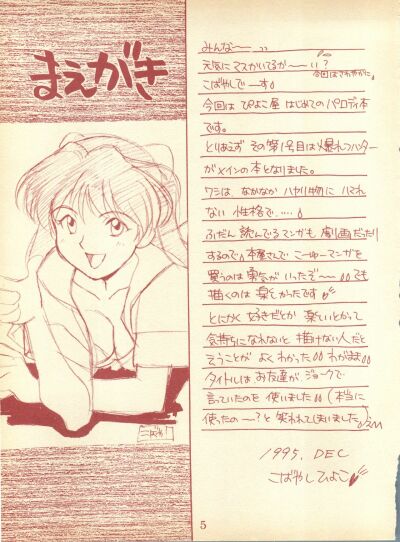 まえがき
みんなー
元気にマスかいてるかーい?
今回はさわやかに
こばやしでーす。
今回は ぴよこ屋 はじめてのパロディ本
です。
とりあえず その第1号目は爆れつハンター
がメインの本となりました。
ワシは なかなか ハヤリ物に ハマれ
ない 性格で.....。
ふだん 読んでるマンガも 劇画だったり
するので 本屋さんで こーゆーマンガを
買うのは 勇気が いったぞ〜 でも
描くのは 楽しかったです
とにかく 好きだとか 楽しいとかって
気持ちになれないと 描けない人だと
そうことが よく わかった わがまま
タイトルは お友達が ジョークで
言っていたのを 使いました (本当に
使ったの〜?と 笑われてしまいました
1995. DEC
こばやしひよこ
5